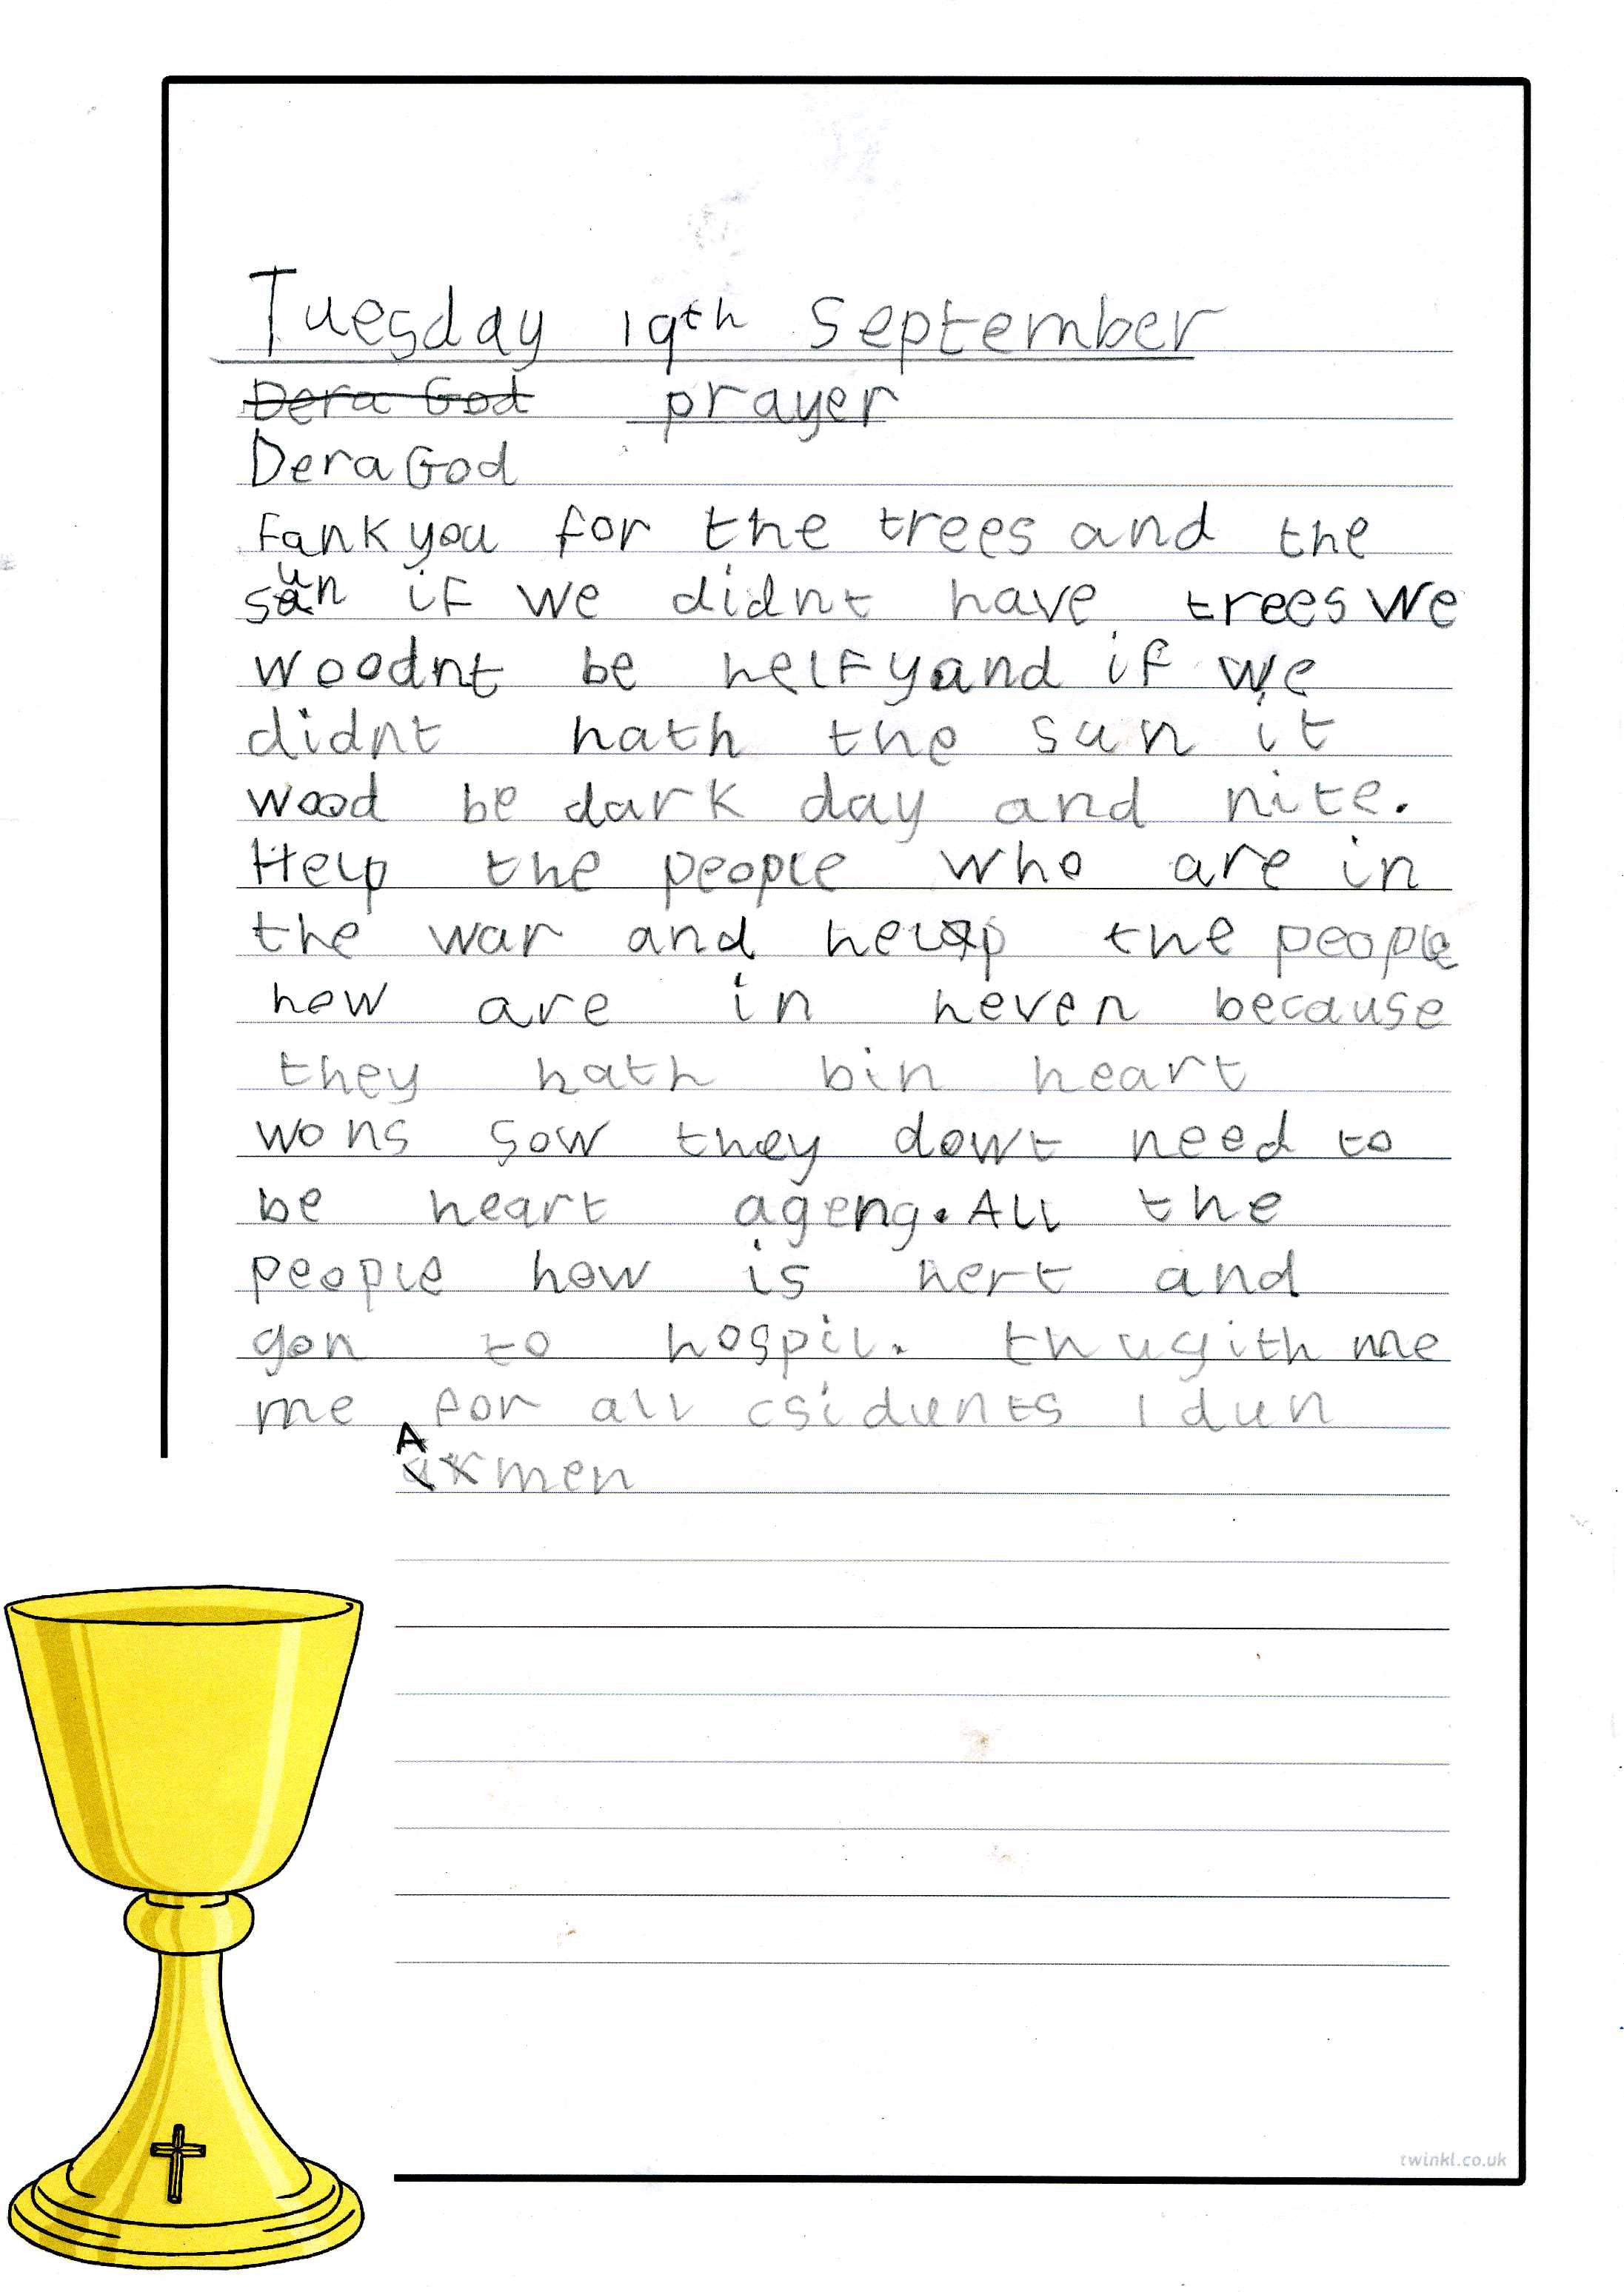 Tuesday 19th September
Dera God prayer
Dera God
Fank you for the trees and the
sun if we didnt have trees we
woodnt be helfy and if we
didnt hath the sun it
wood be dark day and nite.
Help the people who are in
the war and help the people
how are in heven because
they hath bin heart
wons sow they dowt need to
be heart ageng. All the
people how is hert and
gon to hospil. thugith me
me for all csidunts I dun
Amen
twinkl.co.uk